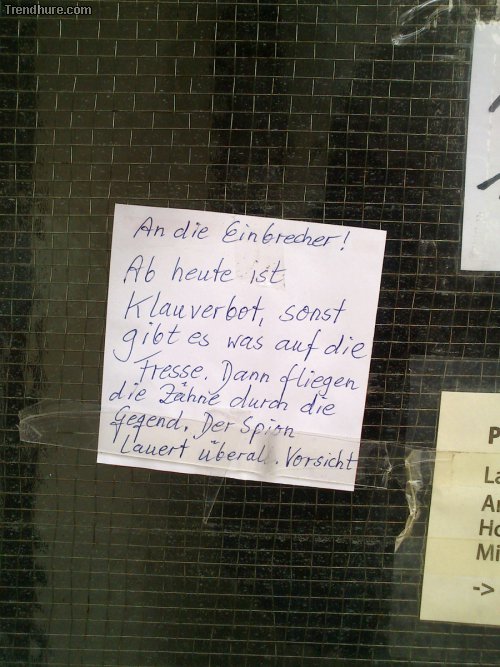 Trendhure.com
An die Einbrecher!
Ab heute ist
Klauverbot, sonst
gibt es was auf die
Fresse. Dann fliegen
die Zähne durch die
Gegend. Der Spion
lauert überall. Vorsicht
P
La
Ar
Ho
Mi
->